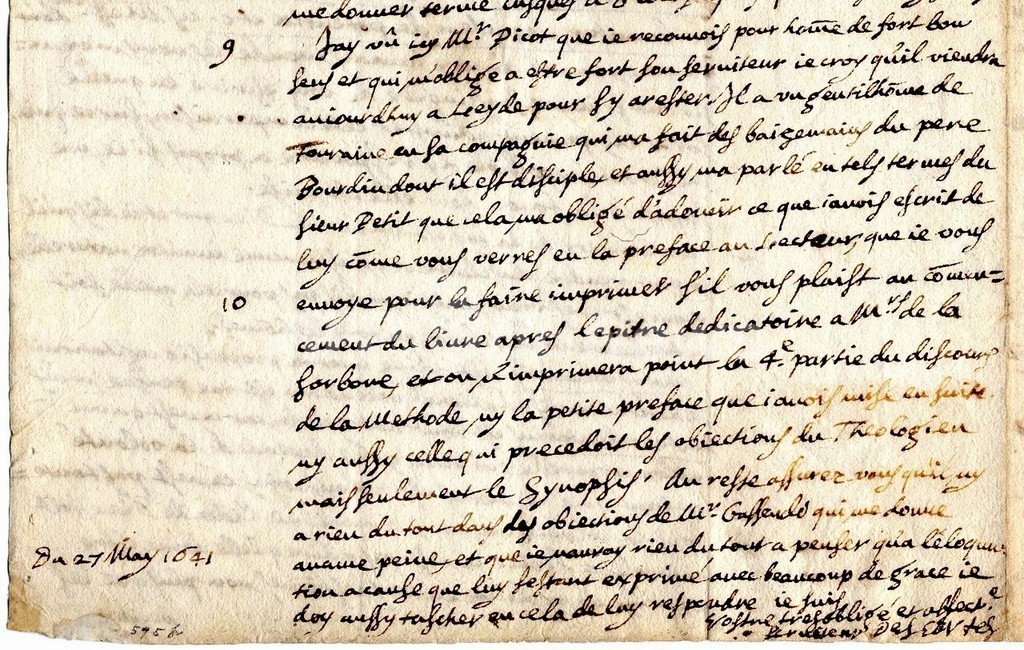 me donner terme jusques a
9 Jay vû icy Mr Picot que ie reconnois pour home de fort bon
sens et qui m'oblige a estre fort son seruiteur ie croy qu'il viendra
auiourdhuy a Leyde pour sy arester. Il a vn gentilhome de
Touraine en sa compagnie qui ma fait des baizemains du pere
Bourdin dont il est disciple, et aussy ma parlé en tels termes du
sieur Petit que cela ma obligé d'adoucir ce que iauois escrit de
luy come vous verres en la preface au Lecteur, que ie vous
10 enuoye pour la faire imprimer s'il vous plaist au comen=
cement du liure apres l'epitre dedicatoire a Mrs de la
sorbone, et on n'imprimera point la 4e partie du discours
de la Methode, ny la petite preface que i'auois mise en suite
ny aussy celle qui precedoit les obiections du Theologien
mais seulement le Synopsis. Au reste assurez vous qu'il ny
a rien du tout dans les obiections de Mr Gassendi qui me donne
aucune peine, et que ie n'auray rien du tout a penser qu'a l'eloqu
Du 27 May 1641
tion a cause que luy s'estant exprimé auec beaucoup de grace ie
doy aussy tascher en cela de luy respondre ie suis
Vostre tresobligé et affect.e
Des Cartes
595